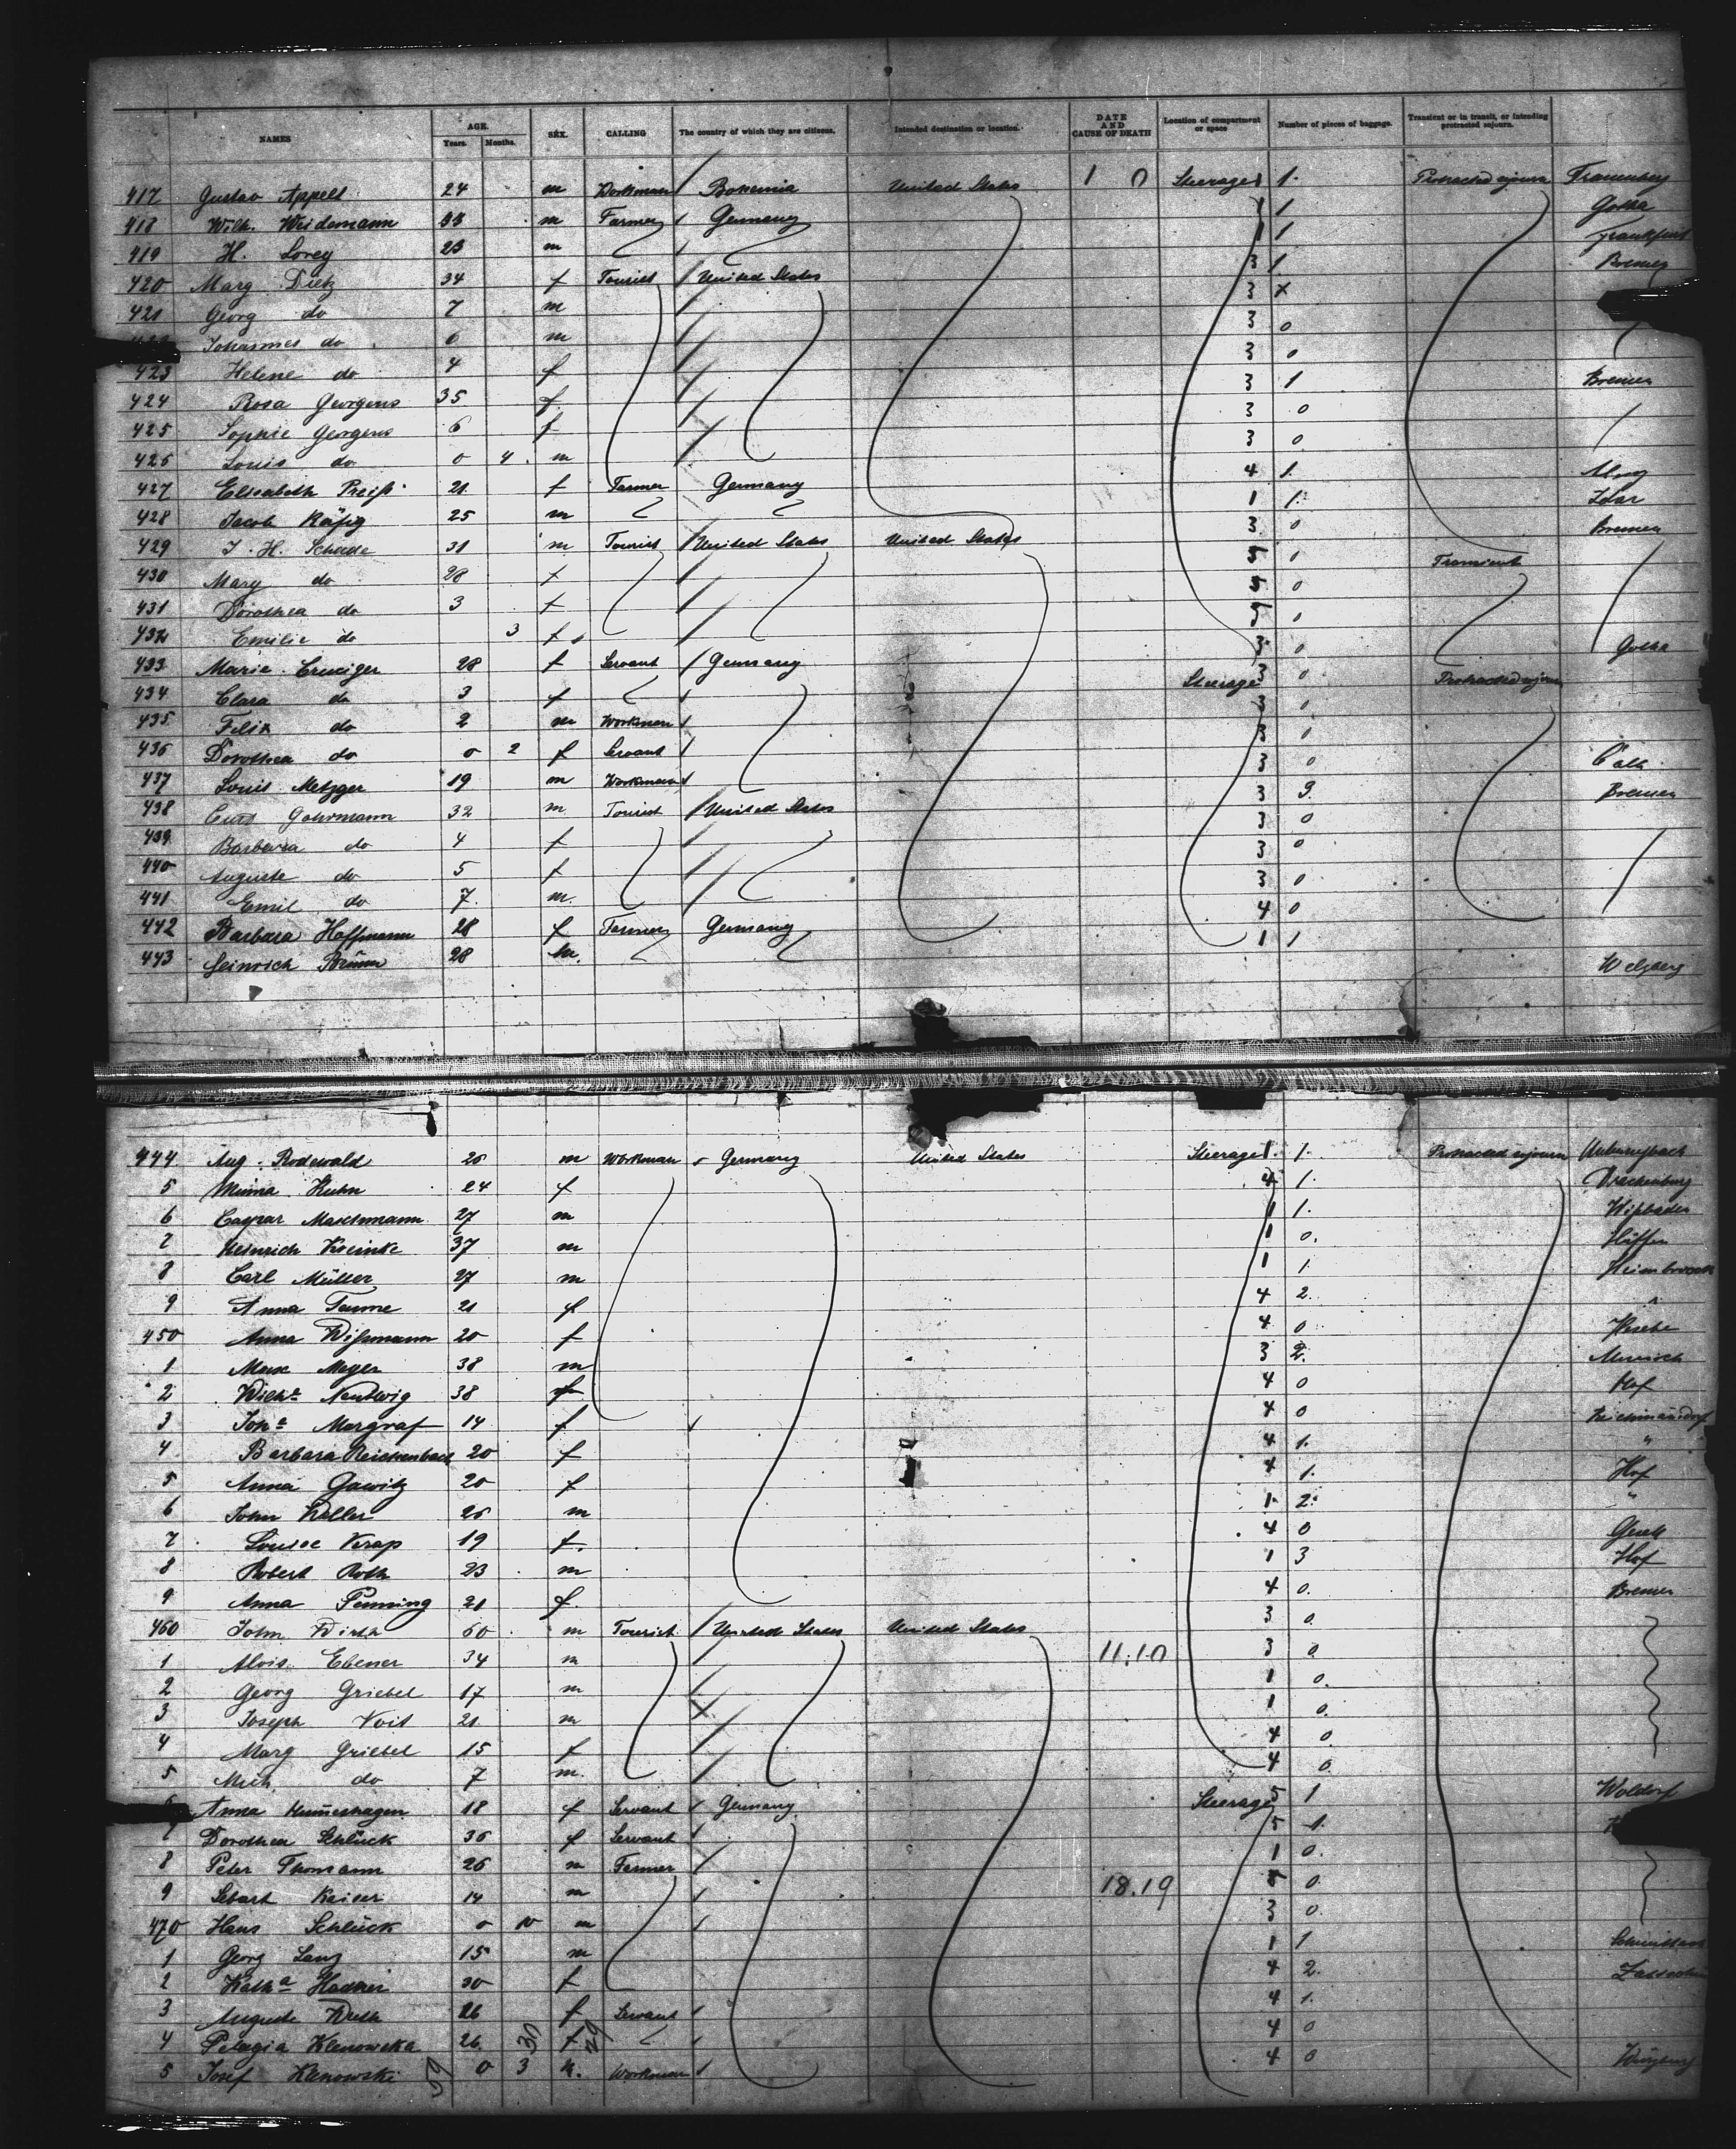 NAMES AGE. Years. Months. SEX. CALLING The country of which they are citizens. Intended destination or location. DATE AND CAUSE OF DEATH Location of compartment or space Number of pieces of baggage. Transient or in transit, or intending protracted sojourn.
417 Gustav Appelt 24 m Workman Bohemia United States 1 0 Steerage 1 1. Protracted sojourn Frauenberg
418 Wilh. Weidemann 33 m Farmer Germany 1 1 Gotha
419 H. Lorey 23 m 1 1 Frankfurt
420 Marg. Dietz 34 f Tourist United States 3 1 Bremen
421 Georg do 7 m 3 x
Johannes do 6 m 3 0
423 Helene do 4 f 3 0
424 Rosa Georgens 35 f. 3 1 Bremen
425 Sophie Georgens 6 f 3 0
426 Louis do 0 4 m 3 0
427 Elisabeth Preiß 21 f Farmer Germany 4 1.
428 Jacob Räfig 25 m 1 1. Idar
429 J. H. Schade 31 m Tourist United States United States 3 0 Bremen
430 Mary do 28 f 5 0 Transient
431 Dorothea do 3 f 5 0
432 Emilie do 3 f 5 0
433 Marie Creuziger 28 f Servant Germany 3 0 Gotha
434 Clara do 3 f Steerage 3 0 Protracted sojourn
435 Felix do 2 m Workman 3 0
436 Dorothea do 0 2 f Servant 3 0
437 Louis Metzger 19 m Workman 3 0
438 Gahrmann 32 m Tourist United States 3 9. Bremen
439 Barbara do 4 f 3 0
440 Auguste do 5 f 3 0
441 Emil do 7. m. 3 0
442 Barbara Hoffmann 28 f Farmer Germany 4 0
443 Heinrich Brünn 28 m. 1 1 Welzberg
444 Aug. Rodewald 25 m Workman Germany United States Steerage 1. 1. Protracted sojourn
5 Minna Kuhn 24 f 4 1. Drachenburg
6 Caspar Maschmann 27 m 1 1. Wißbaden
7 Heinrich Kreinke 37 m 1 0.
8 Carl Müller 27 m 1 1. Heimbrock
9 Anna Taume 21 f 4 2. "
450 Anna Wißmann 20 f 4 0
1 Max Mayer 38 m 3 2. Munich
2 Wilhe Neudwig 38 f 4 0 Hof
3 Johe Margraf 14 f 4 0 Reichmansdorf
4 Barbara Reichenbach 20 f 4 1. "
5 Anna Gawitz 20 f 4 1. Hof
6 John Keller 25 m 1. 2. "
7 Louise Krap 19 f. 4 0
8 Robert Roth 23 m 1 3 Hof
9 Anna Penning 21 f. 4 0. Bremen
460 John Wirth 60 m Tourist United States United States 3 0.
1 Alois Ebener 34 m 11.10 3 0.
2 Georg Griebel 17 m 1 0.
3 Joseph Voit 21. m 1 0.
4 Marg Griebel 15 f 4 0.
5 Mich. do 7 m. 4 0.
6 Anna Hunneshagen 18 f Servant Germany Steerage 5 1 Woldorf
7 Dorothea Schlück 36 f Servant 5 1.
8 Peter Thomann 26 m Farmer 1 0.
9 Sebast Kaiser 14 m 18.19 5 0.
470 Hans Schlück 0 10 m 3 0.
1 Georg Lang 15 m 1 1
2 Katha Hadner 30 f 4 2.
3 Auguste Wreth 26 f Servant 4 1.
4 Pelagia Klenowska 26. f 4 0
5 Josef Klenowski 0 3 m. Workman 4 0
59 30 29